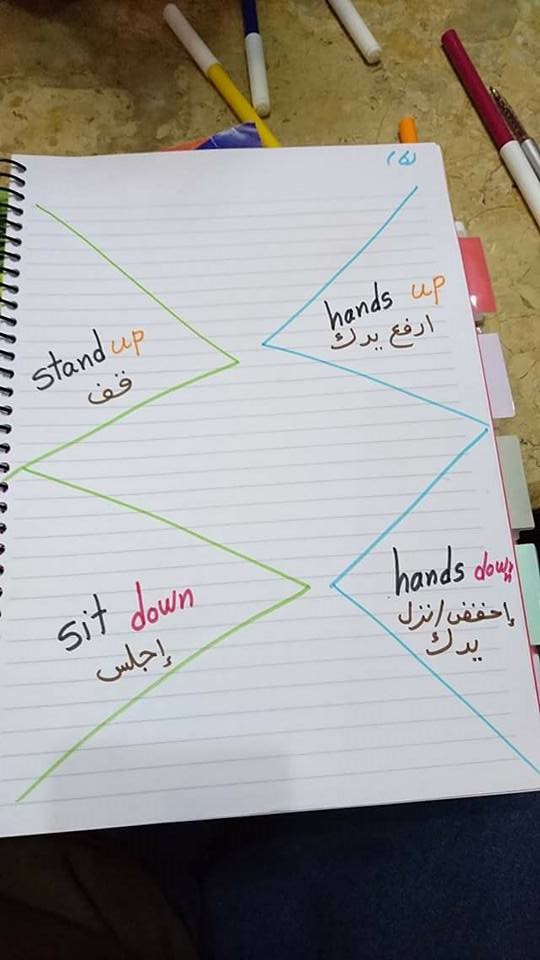 stand up
قف
hands up
ارفع يدك
sit down
إجلس
hands down
إخفض/نزل
يدك